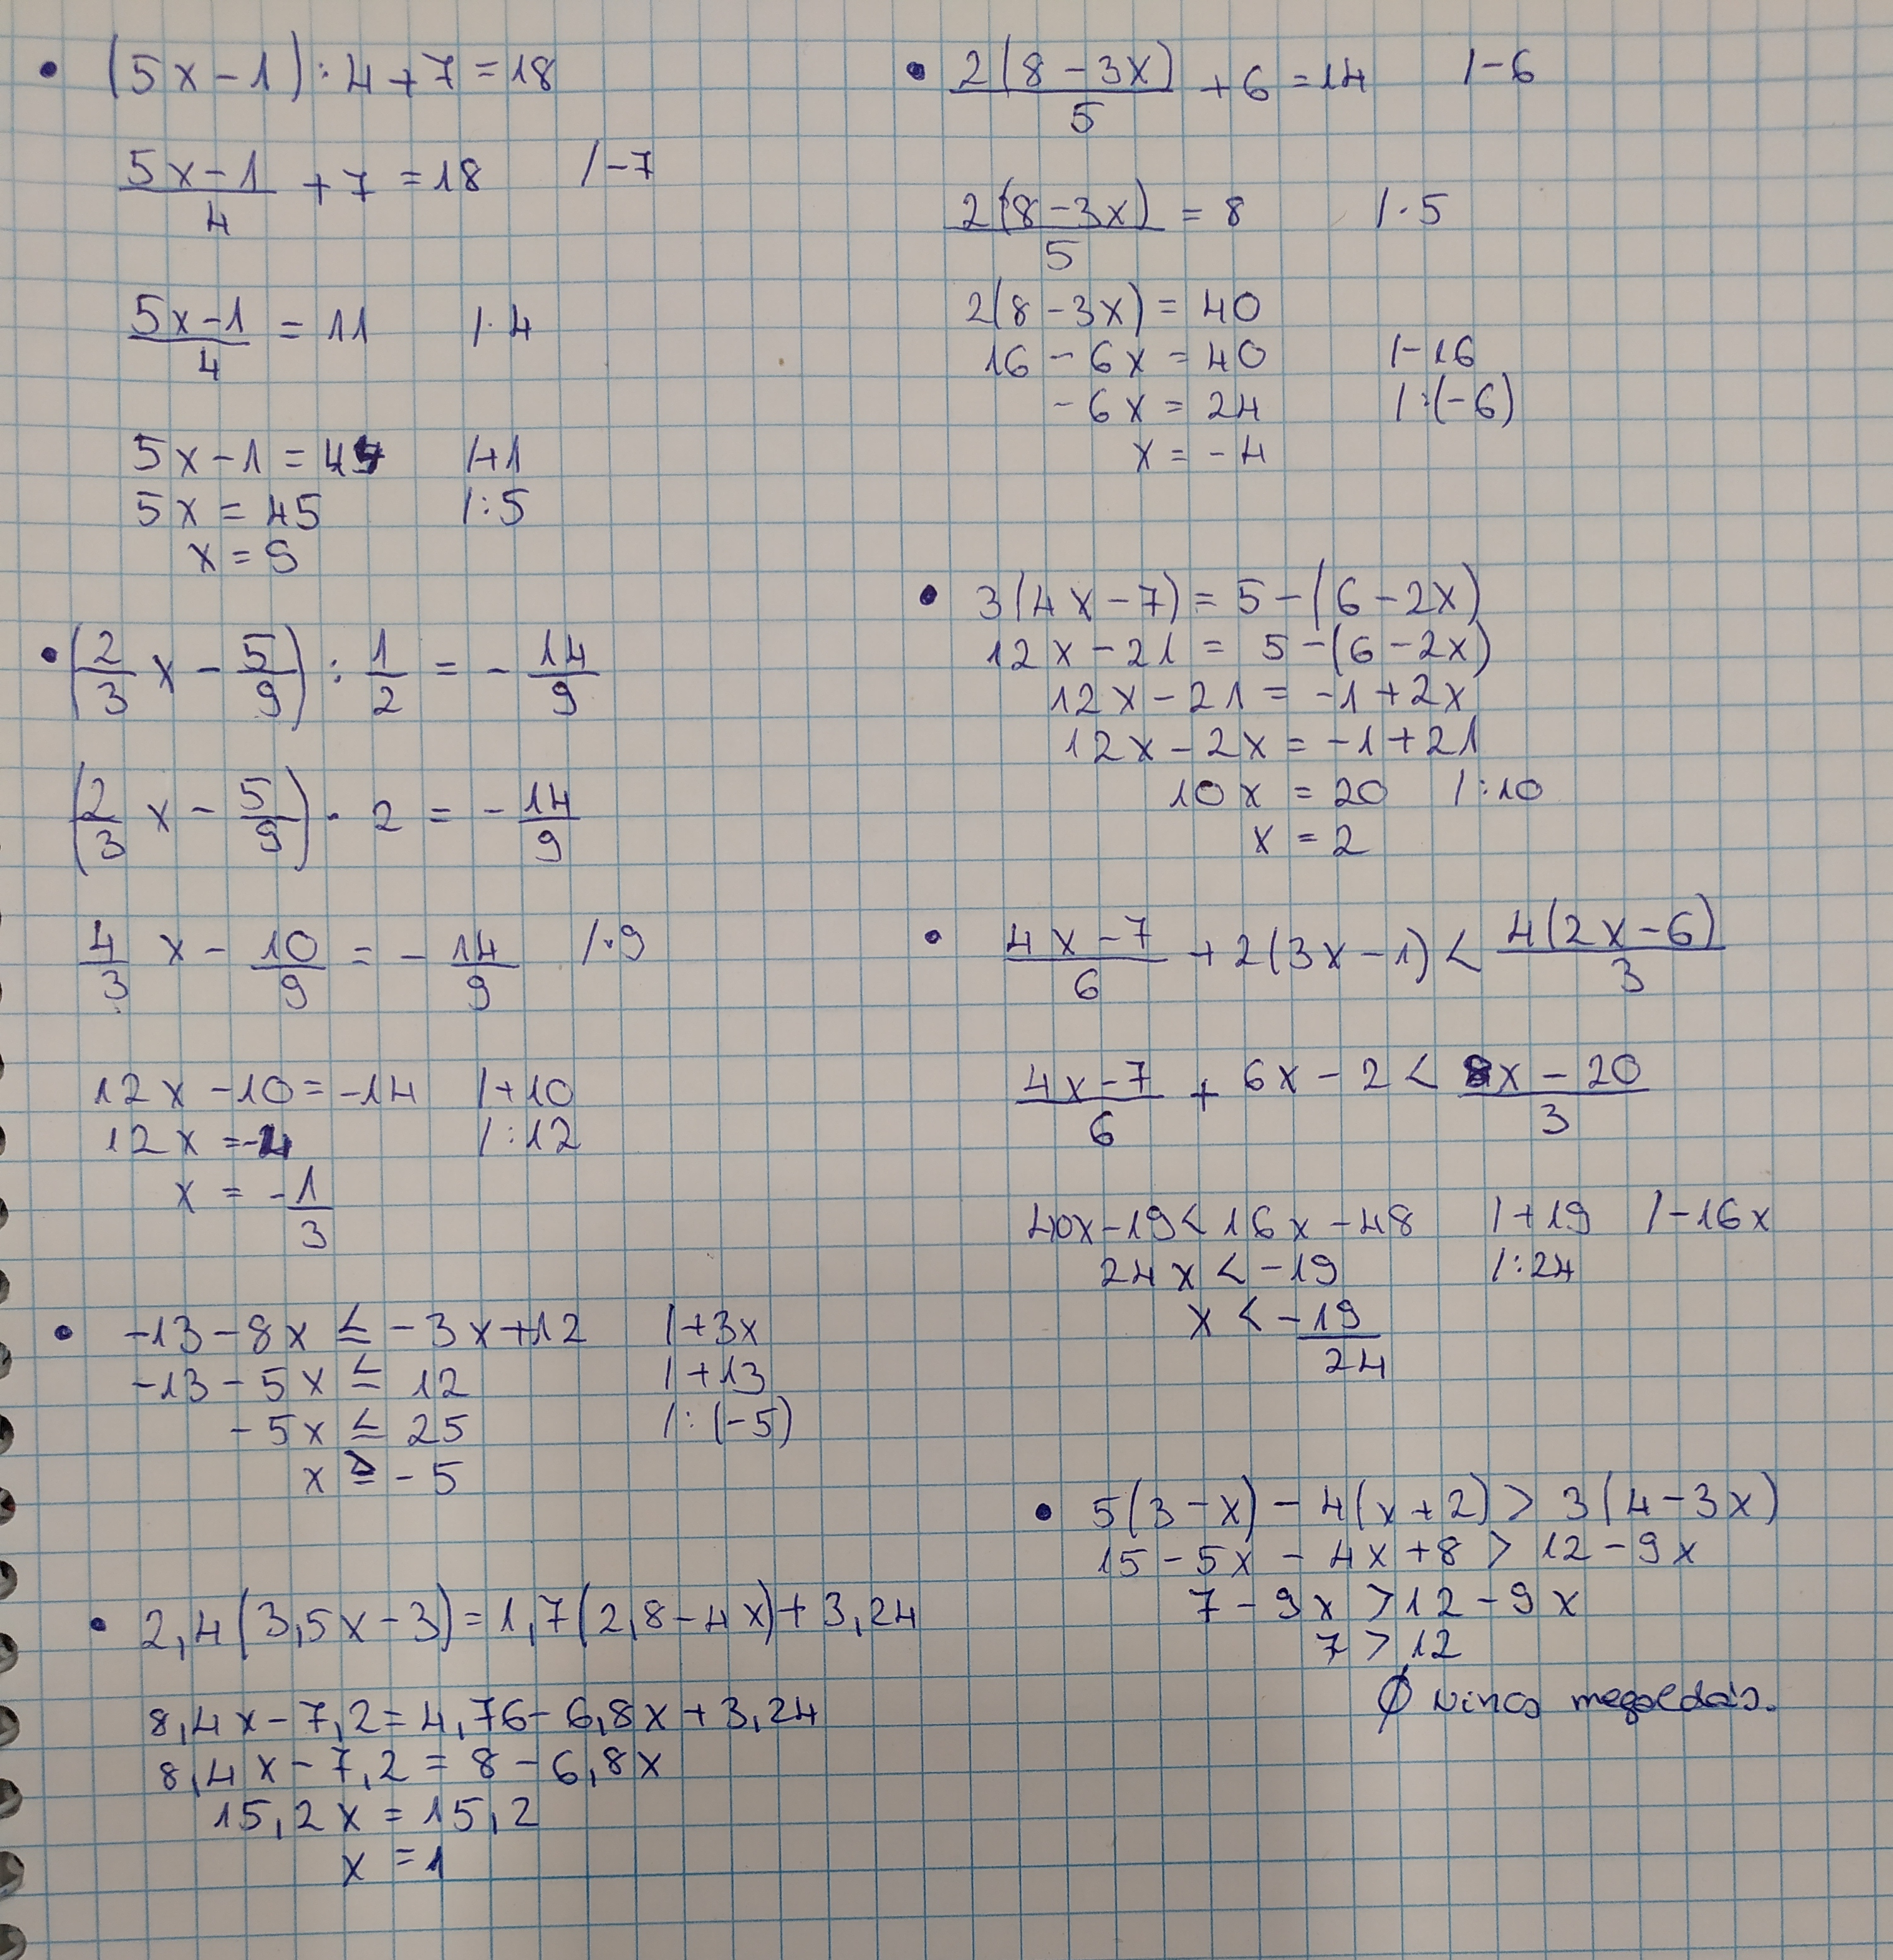 • (5x-1):4+7=18
(5x-1)/4 + 7 = 18 /-7
(5x-1)/4 = 11 /·4
5x-1=44 /+1
5x=45 /:5
x=9
• (2/3 x - 5/9) : 1/2 = - 14/9
(2/3 x - 5/9) · 2 = - 14/9
4/3 x - 10/9 = - 14/9 /·9
12x-10=-14 /+10
12x=-4 /:12
x = -1/3
• -13-8x ≤ -3x+12 /+3x
-13-5x ≤ 12 /+13
-5x ≤ 25 /:(-5)
x ≥ -5
• 2,4(3,5x-3)=1,7(2,8-4x)+3,24
8,4x-7,2=4,76-6,8x+3,24
8,4x-7,2=8-6,8x
15,2x=15,2
x=1
• 2(8-3x)/5 + 6 = 14 /-6
2(8-3x)/5 = 8 /·5
2(8-3x)=40
16-6x=40 /-16
-6x=24 /:(-6)
x=-4
• 3(4x-7)=5-(6-2x)
12x-21=5-(6-2x)
12x-21=-1+2x
12x-2x=-1+21
10x=20 /:10
x=2
• (4x-7)/6 + 2(3x-1) < 4(2x-6)/3
(4x-7)/6 + 6x-2 < (8x-20)/3
40x-19<16x-48 /+19 /-16x
24x<-19 /:24
x < -19/24
• 5(3-x)-4(x+2)>3(4-3x)
15-5x-4x+8>12-9x
7-9x>12-9x
7>12
∅ Nincs megoldás.